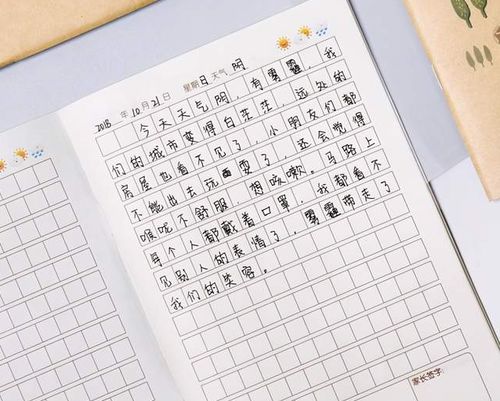 2018年10月21日 星期日 天气 阴
今天天气阴，有雾霾，我
们的城市变得白茫茫，远处的
房屋也看不见了，小朋友们都
不能出去玩耍了，还会觉得
喉咙不舒服，想咳嗽。马路上
每个人都戴着口罩，我都看不
见别人的表情了，雾霾带走了
我们的笑容。
家长签字: